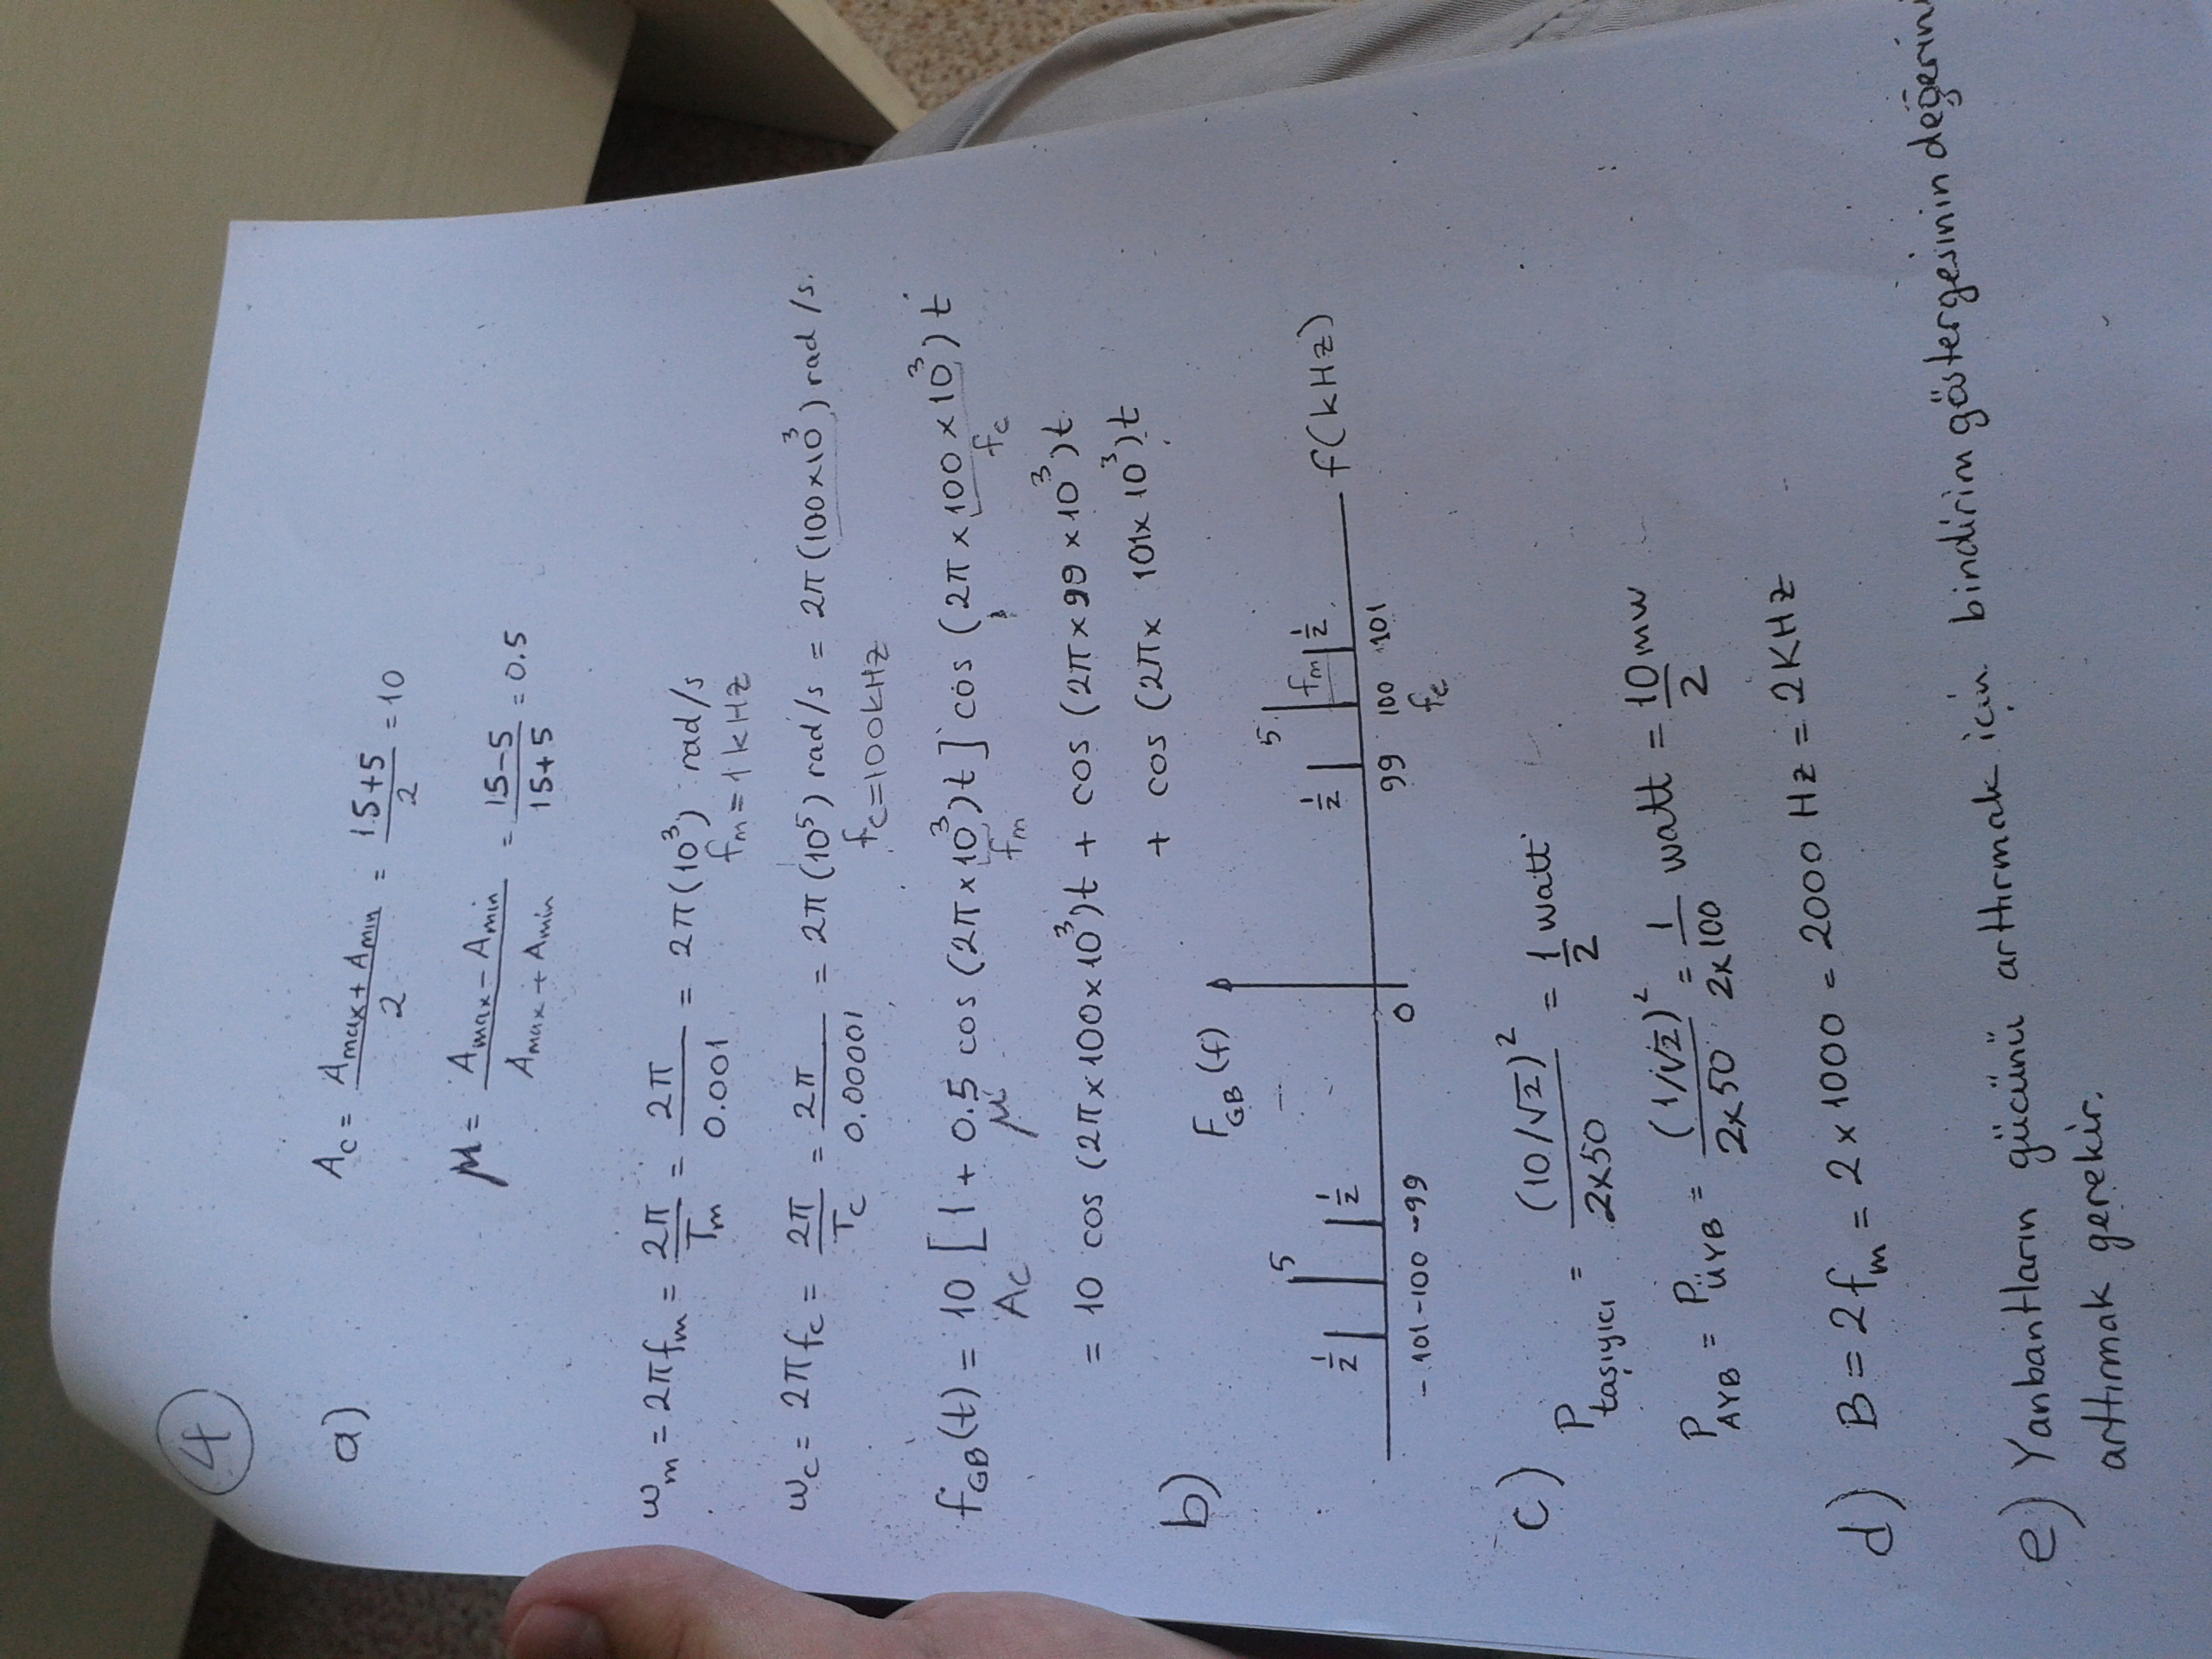 4
a) A_c = (A_max + A_min)/2 = (15+5)/2 = 10
μ = (A_max - A_min)/(A_max + A_min) = (15-5)/(15+5) = 0.5
ω_m = 2πf_m = 2π/T_m = 2π/0.001 = 2π(10^3) rad/s
f_m = 1 kHz
ω_c = 2πf_c = 2π/T_c = 2π/0.00001 = 2π(10^5) rad/s = 2π(100x10^3) rad/s.
f_c = 100kHz
f_GB(t) = 10 [1 + 0.5 cos (2π x 10^3)t] cos (2π x 100 x 10^3) t
A_c μ f_m f_c
= 10 cos (2π x 100 x 10^3)t + cos (2π x 99 x 10^3)t
+ cos (2π x 101 x 10^3)t
b) F_GB(f)
1/2 5 1/2 1/2 5 f_m 1/2
-101 -100 -99 0 99 100 101 f(kHz)
f_c
c) P_taşıyıcı = (10/√2)^2/(2x50) = 1/2 watt
P_AYB = P_ÜYB = (1/√2)^2/(2x50) = 1/(2x100) watt = 10/2 mw
d) B = 2f_m = 2 x 1000 = 2000 Hz = 2KHz
e) Yanbantların gücünü arttırmak için bindirim göstergesinin değerini
arttırmak gerekir.